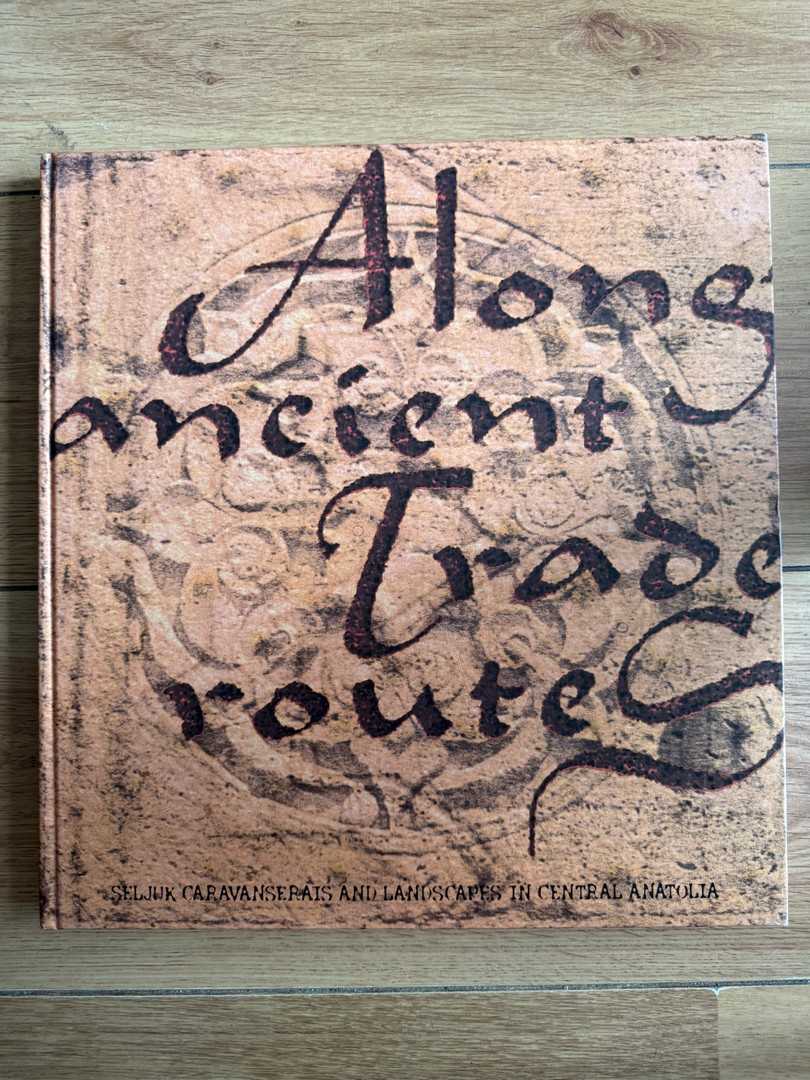 Along
ancient
Trade
routes
SELJUK CARAVANSERAIS AND LANDSCAPES IN CENTRAL ANATOLIA